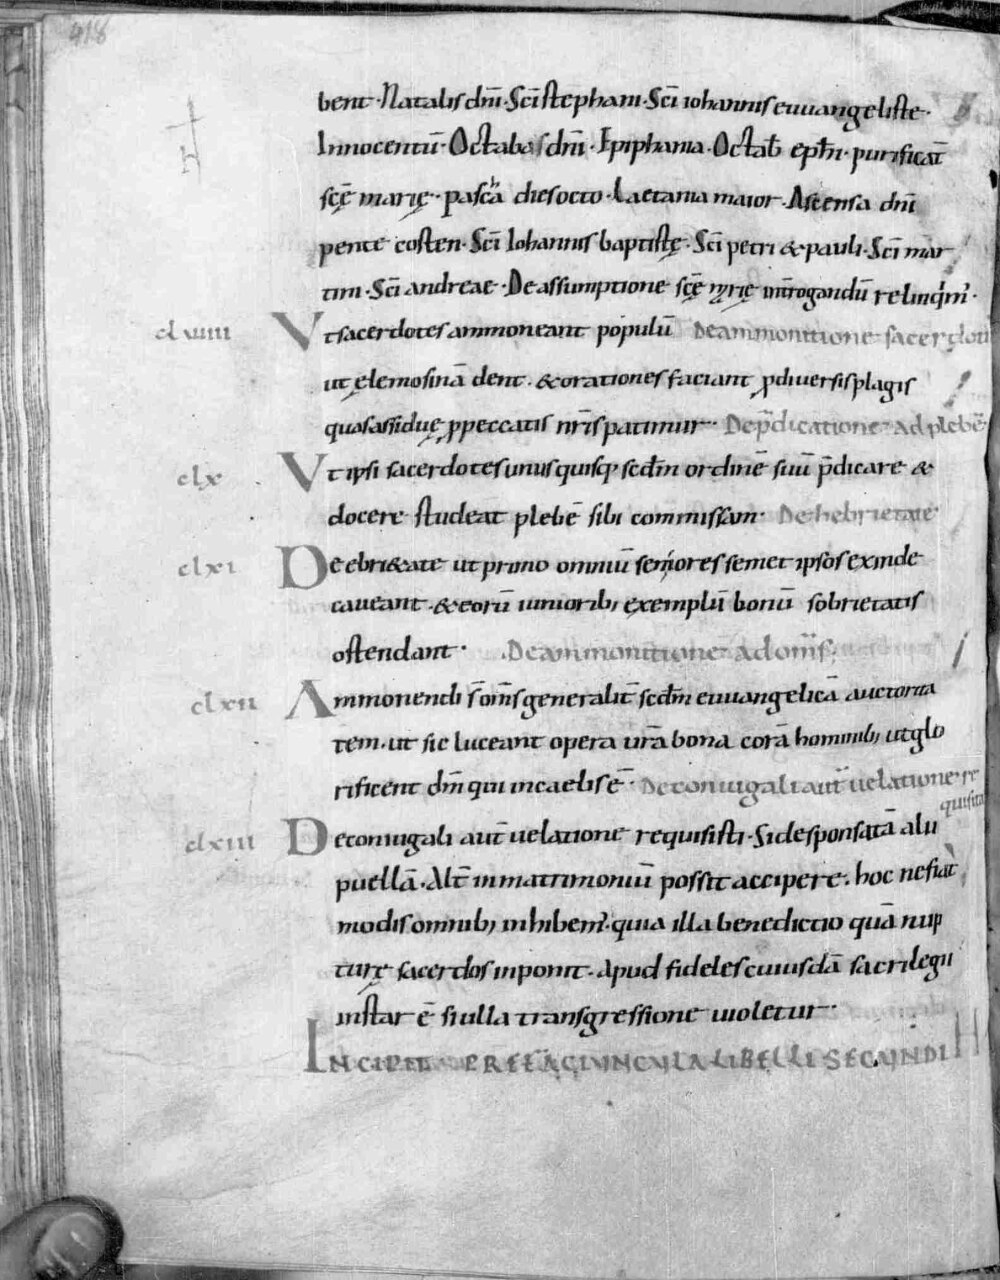 418
bent· Natalis dn̄i· Sc̄i stephani· Sc̄i iohannis euuangeliste·
Innocentū· Octabas dn̄i· Epiphania· Octab̄ eph̄i· purificat̄
sc̄ę marię· pascha dies octo· Laetania maior· Ascensa dn̄i
pente costen· Sc̄i Iohannis baptistę· Sc̄i petri & pauli· Sc̄i mar
tini· Sc̄i andreae· De assumptione sc̄ę
clviiii Vt sacerdotes ammoneant populū De ammonitione sacerdotū
ut elemosinā dent· & orationes faciant p diuersis plagis
quas assiduę p peccatis nr̄is patimur· De p̄dicatione ad plebē
clx Vt ipsi sacerdotes unusquisq; scdm̄ ordinē suū p̄dicare &
docere studeat plebē sibi commissam· De hebrietate
clxi De ebri&ate ut primo omniū seniores semet ipsos exinde
caueant· & eorū iuniorib; exemplū bonū sobrietatis
ostendant· De ammonitione ad om̄s
clxii Ammonendi s̄ om̄s generalit̄ scdm̄ euuangelicā auctorita
tem· ut sic luceant opera ur̄a bona corā hominib; ut glo
rificent dm̄ qui in caelis ē· De coniugali aut̄ uelatione re
quisita
clxiii De coniugali aut̄ uelatione requisisti· Si desponsatā alii
puellā· Alt̄ in matrimoniū possit accipere· hoc ne fiat
modis omnib; inhibem̄· quia illa benedictio quā nup
turę sacerdos inponit· apud fideles cuiusdā sacrilegii
instar ē si ulla transgressione uioletur·
INCIPIT LIBELLI SECUNDI